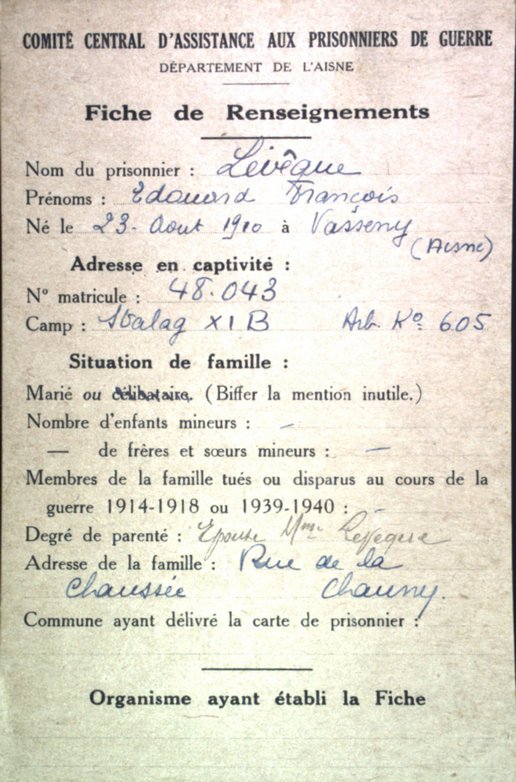 COMITÉ CENTRAL D'ASSISTANCE AUX PRISONNIERS DE GUERRE
DÉPARTEMENT DE L'AISNE
Fiche de Renseignements
Nom du prisonnier : Lévêque
Prénoms : Edouard François
Né le 23. Aout 1910 à Vasseny
(Aisne)
Adresse en captivité :
N° matricule : 48.043
Camp : Stalag XI B Arb. K° 605
Situation de famille :
Marié ou célibataire. (Biffer la mention inutile.)
Nombre d'enfants mineurs : -
— de frères et sœurs mineurs : —
Membres de la famille tués ou disparus au cours de la
guerre 1914-1918 ou 1939-1940 : -
Degré de parenté : Epouse Mme
Adresse de la famille : Rue de la
Chaussée Chauny.
Commune ayant délivré la carte de prisonnier :
Organisme ayant établi la Fiche